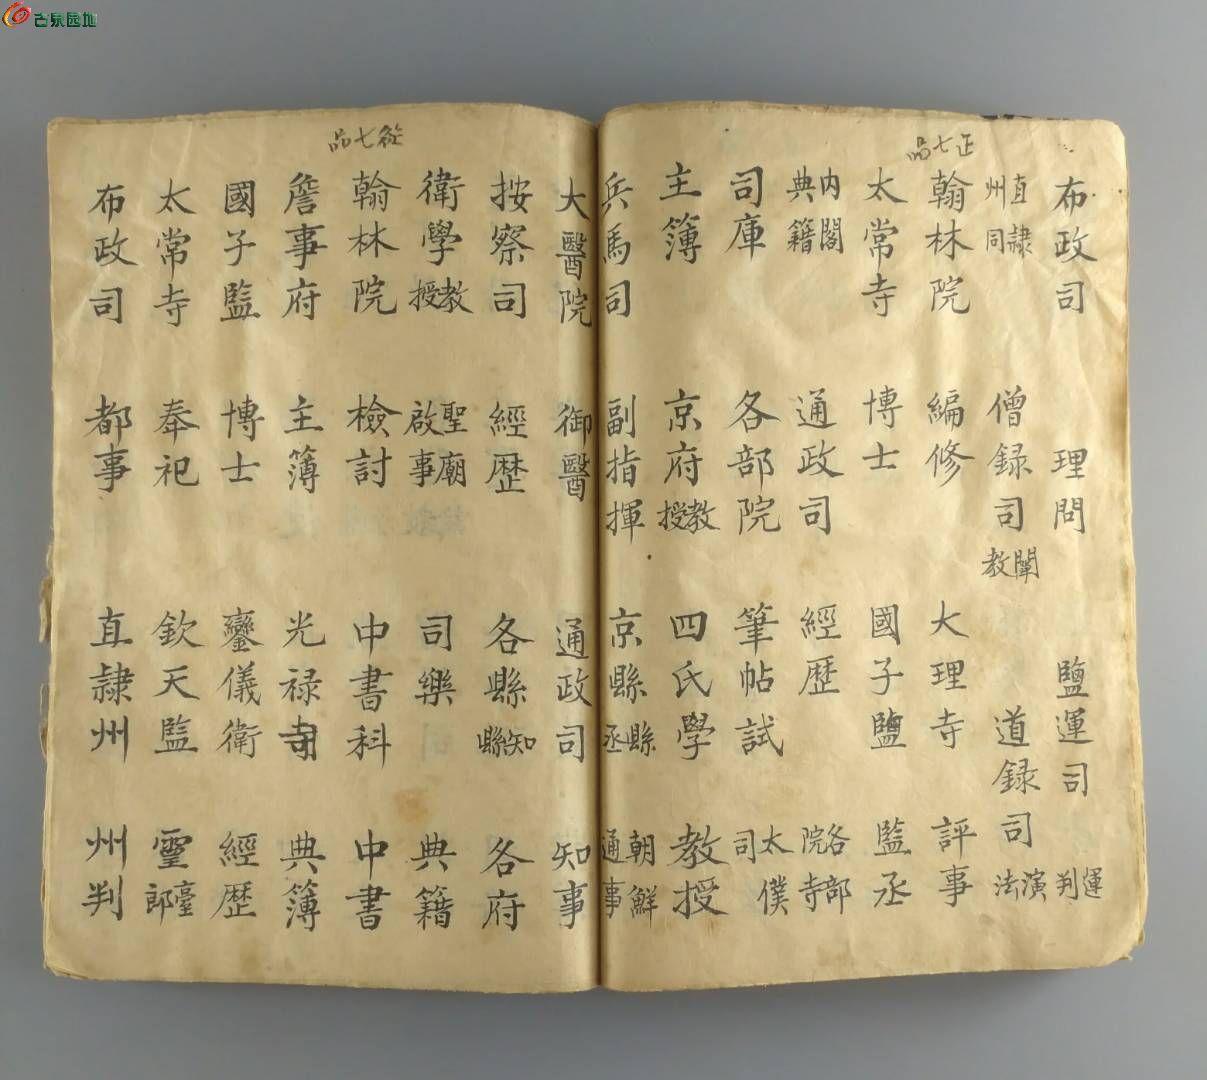 古泉园地
正七品
布政司 理問 鹽運司 運判
直隸州同 僧録司 闡教 道録司 演法
翰林院 編修 大理寺 評事
太常寺 博士 國子監 監丞
内閣典籍 通政司 經歴 各部院寺
司庫 各部院 筆帖試 太僕司
主簿 京府教授 四氏學 教授
兵馬司 副指揮 京縣縣丞 朝鮮通事
從七品
大醫院 御醫 通政司 知事
按察司 經歴 各縣知縣 各府
衛學教授 聖廟啟事 司樂 典籍
翰林院 檢討 中書科 中書
詹事府 主簿 光禄寺 典簿
國子監 博士 鑾儀衛 經歴
太常寺 奉祀 欽天監 靈臺郎
布政司 都事 直隸州 州判